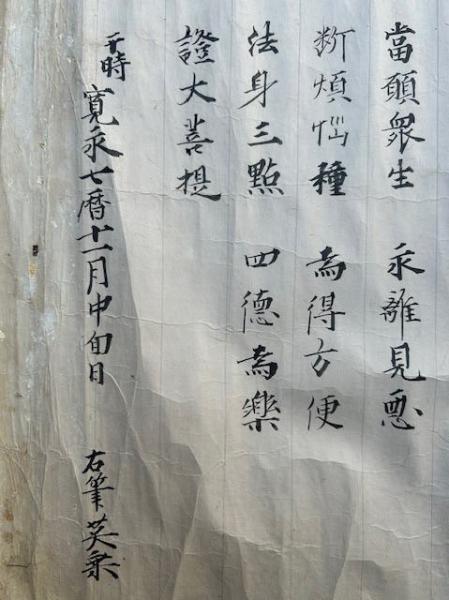 當願衆生　永離見悪
断煩悩種　為得方便
法身三點　四德為樂
證大菩提
于時寛永七暦十一月中旬日　右筆英乗